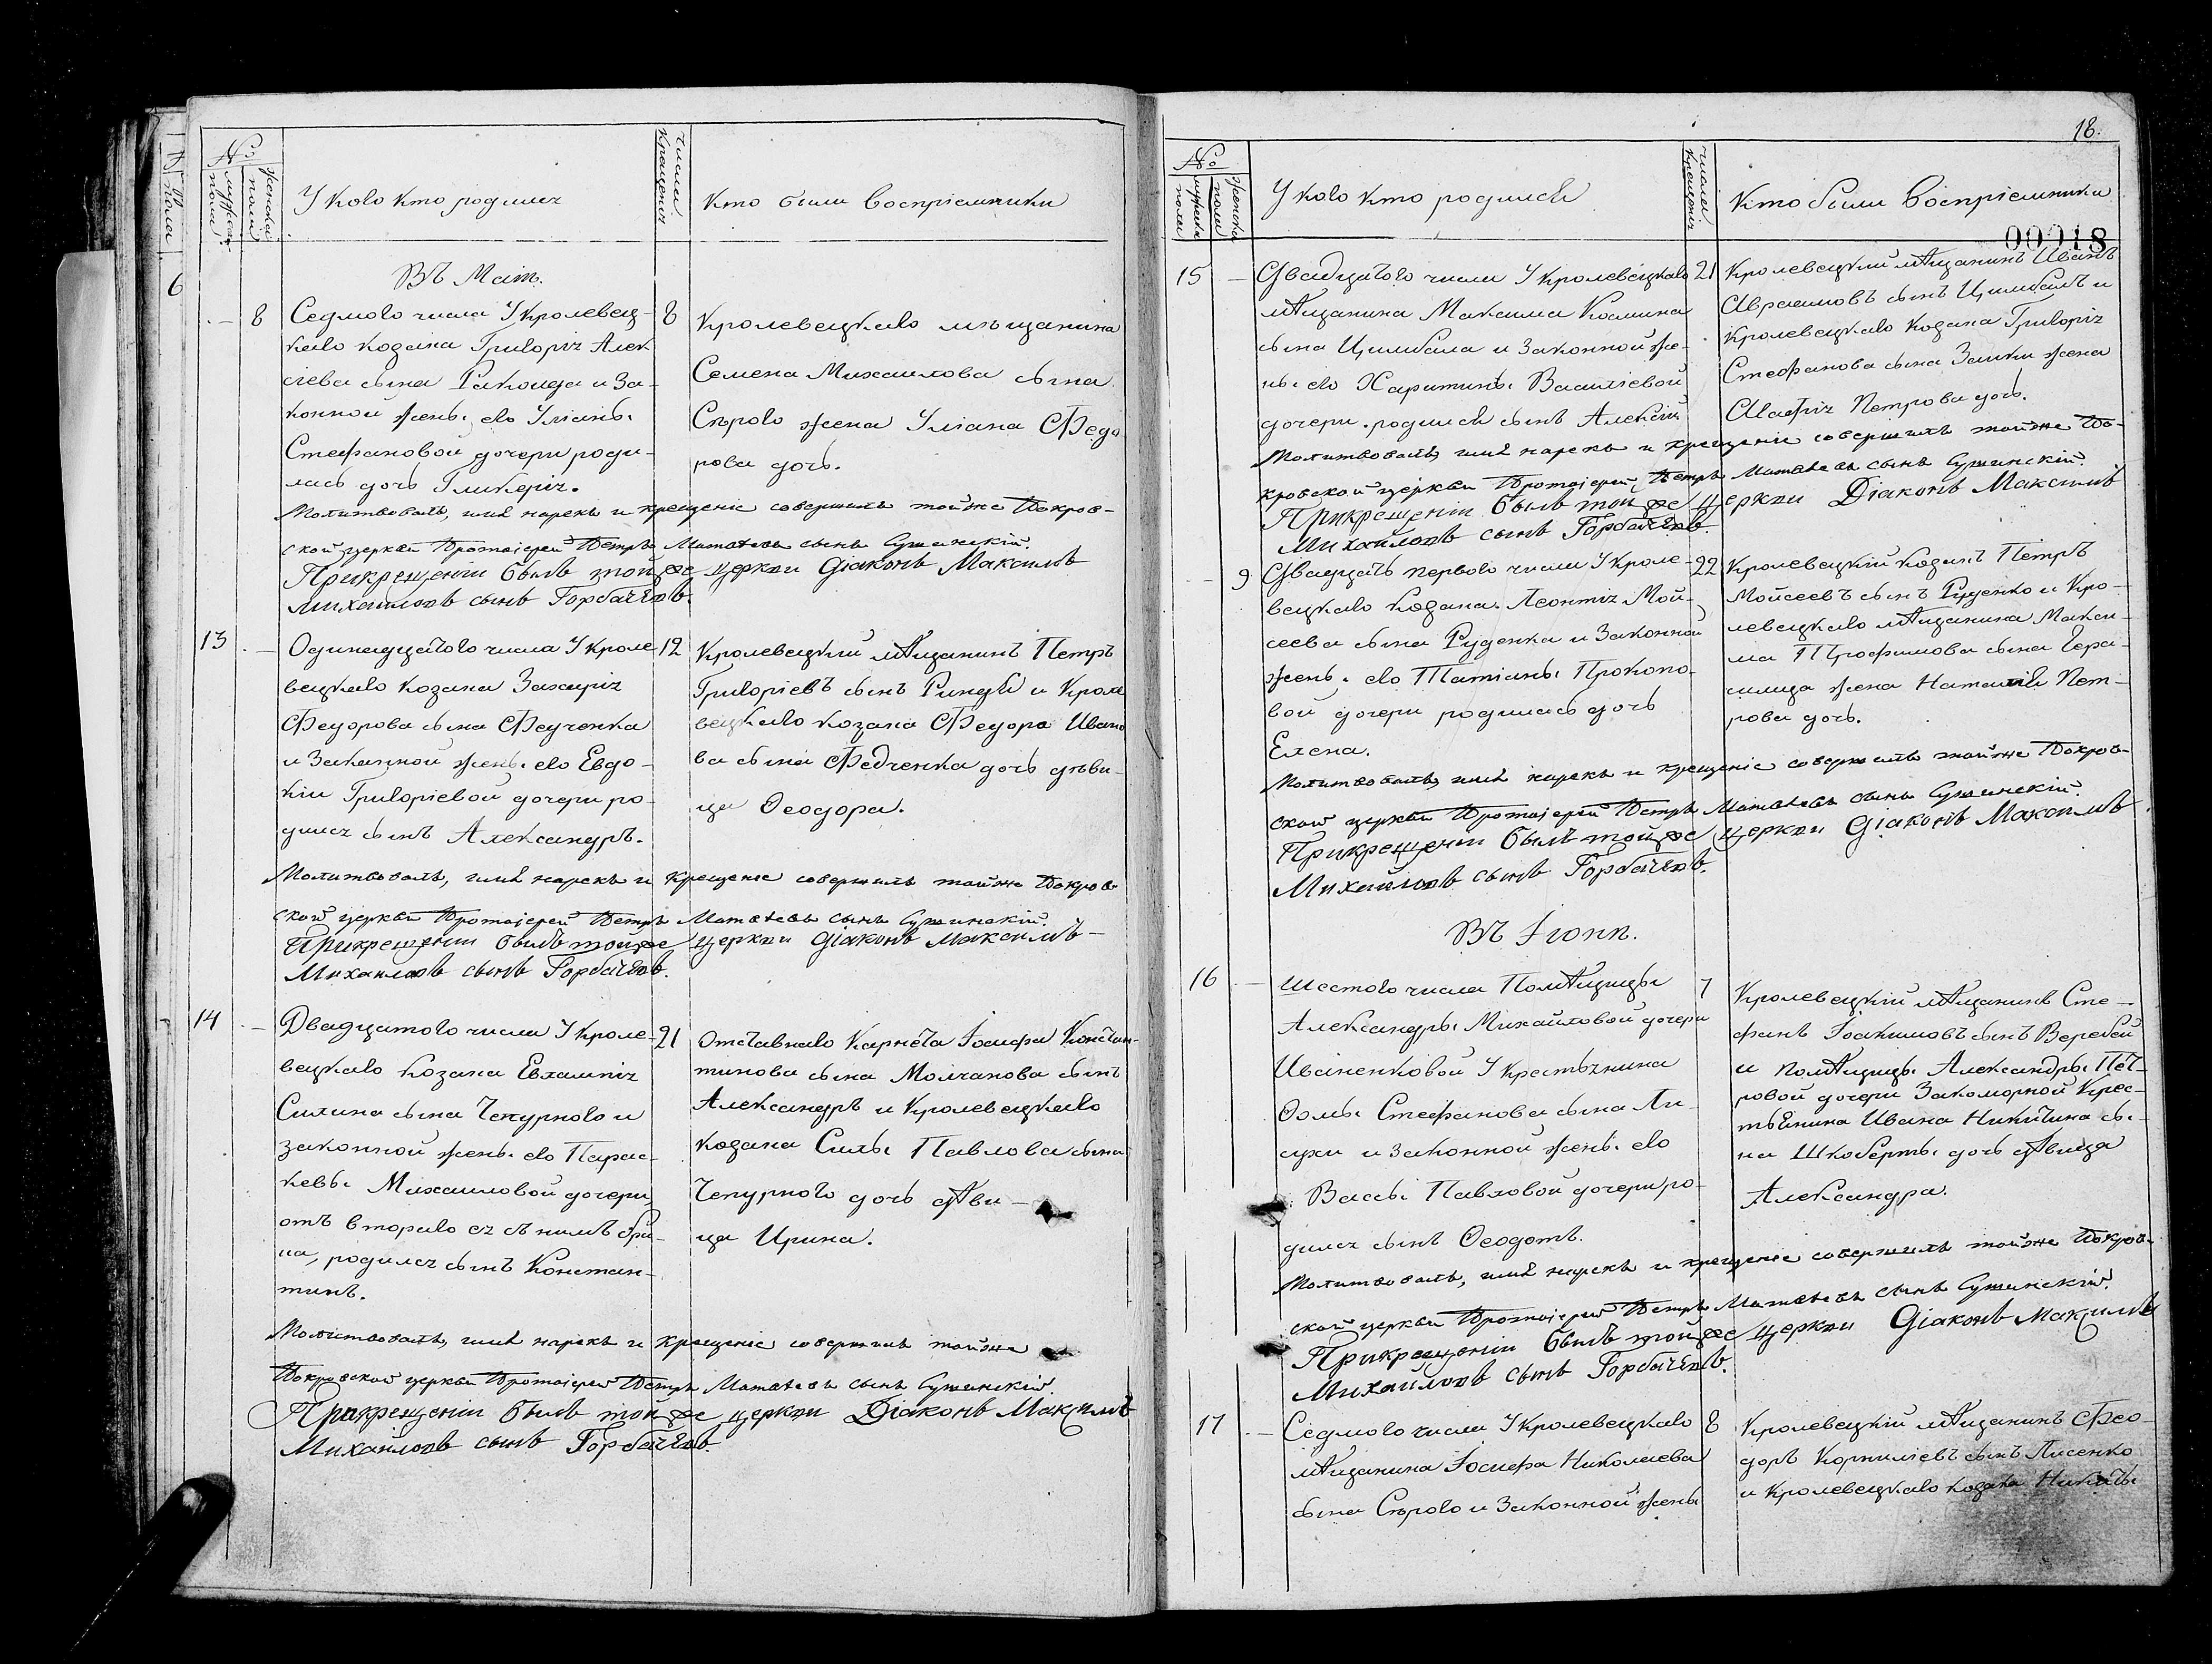 №
мужеска полу
женска полу
У кого кто родился
число крещенія
кто были воспріемники
6
Въ Маіи.
8
Седмого числа У Кролевец-
каго козака Григорія Алек
сіева сына и За-
конной жены его Уліаны
Стефановой дочери роди-
лась дочь Гликерія.
8
Кролевецкаго мѣщанина
Семена Михаилова сына
Сѣрого жена Уліана Федо
рова дочь.
Молитвовалъ, имя нарекъ и крещеніе совершилъ тойже Покров-
ской церкви Протоіерей Петръ Матвѣевъ сынъ Сушинскій.
Прикрещеніи былъ тойже церкви Діаконъ Максимъ
Михайловъ сынъ Горбачевъ.
13
Одинадцатого числа У Кроле
вецкаго козака Захарія
Федорова сына Федченка
и Законной жены его Евдо-
кіи Григоріевой дочери ро-
дился сынъ Александръ.
12
Кролевецкий мѣщанинъ Петръ
Григоріевъ сынъ Риндя и Кроле
вецкаго козака Федора Ивано
ва сына Федченка дочь дѣви-
ца Ѳеодора.
Молитвовалъ, имя нарекъ и крещеніе совершилъ тойже Покров-
ской церкви Протоіерей Петръ Матвѣевъ сынъ Сушинскій.
Прикрещеніи былъ тойже церкви Діаконъ Максимъ-
Михайловъ сынъ Горбачевъ.
14
Двадцатого числа У Кроле-
вецкаго козака Евхампія
Силина сына Чепурного и
законной жены его Парас-
кевы Михаиловой дочери
отъ вторало сѣ съ нимъ бра-
ка, родился сынъ Констан-
тинъ.
21
Отставнаго Карнета Іосифа Констан-
тинова сына Молчанова сынъ
Александръ и Кролевецкаго
козака Силы Павлова сына
Чепурного дочь дѣви-
ца Ирина.
Молитвовалъ, имя нарекъ и крещеніе совершилъ тойже
Покровской церкви Протоіерей Петръ Матвѣевъ сынъ Сушинскій.
Прикрещеніи былъ тойже церкви Діаконъ Максимъ
Михайловъ сынъ Горбачевъ.
18.
№
мужеска полу
женска полу
У кого кто родился
число крещенія
Кто были воспріемники
00018
15
Двадцатого числа У Кролевецкаго
мѣщанина Максима Космина
сына Цимбала и Законной же-
ны его Харитины Василіевой
дочери родился сынъ Алексій
21
Кролевецкий мѣщанинъ Иванъ
Авраамовъ сынъ Цимбалъ и
Кролевецкаго козака Григорія
Стефанова сына Заики жена
Агафія Петрова дочь.
Молитвовалъ, имя нарекъ и крещеніе совершилъ тойже По-
кровской церкви Протоіерей Петръ Матвѣевъ сынъ Сушинскій.
Прикрещеніи былъ тойже церкви Діаконъ Максимъ
Михайловъ сынъ Горбачевъ.
9
Двадцать первого числа У Кроле-
вецкаго козака Леонтія Мой-
сеева сына Руденка и Законной
жены его Татіаны Прокопо-
вой дочери родилась дочь
Елена.
22
Кролевецкій козакъ Петръ
Мойсеевъ сынъ Руденко и Кро-
левецкаго мѣщанина Макси-
ма Трофимова сына Гера-
жена Наталія Пет-
рова дочь.
Молитвовалъ, имя нарекъ и крещеніе совершилъ тойже Покров-
ской церкви Протоіерей Петръ Матвѣевъ сынъ Сушинскій.
Прикрещеніи былъ тойже церкви Діаконъ Максимъ
Михайловъ сынъ Горбачевъ.
Въ Іюни.
16
Шестого числа Помѣщицы
Александры Михайловой дочери
Иваненковой У крестьянина
Ѳомы Стефанова сына Ли-
и законной жены его
Вассы Павловой дочери ро-
дился сынъ Ѳеодотъ.
7
Кролевецкій мѣщанинъ Сте-
фанъ Іоакимовъ сынъ Веребей
и помѣщицы Александры Пет-
ровой дочери Закоморной Крес-
тьянина Ивана Никитина сы-
на Шкоберты дочь дѣвица
Александра.
Молитвовалъ, имя нарекъ и крещеніе совершилъ тойже Покров-
ской церкви Протоіерей Петръ Матвѣевъ сынъ Сушинскій.
Прикрещеніи былъ тойже церкви Діаконъ Максимъ
Михайловъ сынъ Горбачевъ.
17
Седмого числа У Кролевецкаго
мѣщанина Іосифа Николаева
сына Сѣрого и Законной жены
8
Кролевецкій мѣщанинъ Фео-
доръ Корниліевъ сынъ Лисенко
и Кролевецкаго козака Никиты